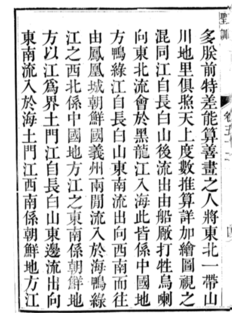 多朕前特差能算善畫之人將東北一帶山
川地里俱照天上度數推算詳加繪圖視之
混同江自長白山後流出由船廠打牲烏喇
向東北流會於黑龍江入海此皆係中國地
方鴨綠江自長白山東南流出向西南而往
由鳳凰城朝鮮國義州兩間流入於海鴨綠
江之西北係中國地方江之東南係朝鮮地
方以江為界土門江自長白山東邊流出向
東南流入於海土門江西南係朝鮮地方江
聖訓